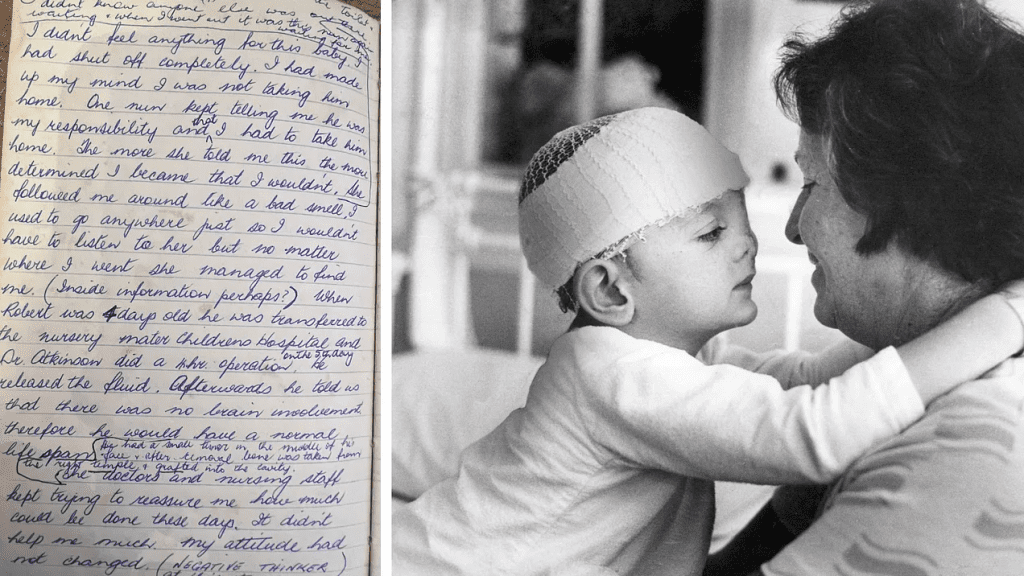 didnt know anyone else was
waiting & when I went out it was
I didnt feel anything for this baby. I
had shut off completely. I had made
up my mind I was not taking him
home. One nun kept telling me he was
my responsibility and that I had to take him
home. The more she told me this the more
determined I became that I wouldn't. She
followed me around like a bad smell, I
used to go anywhere just so I wouldn't
have to listen to her but no matter
where I went she managed to find
me. (Inside information perhaps?) When
Robert was 4 days old he was transferred to
the nursery mater Childrens Hospital and
Dr. Atkinson did a operation, on the 5th day he
released the fluid. Afterwards he told us
that there was no brain involvement
therefore he would have a normal
life span (he had a small in the middle of his
face & after removal bone was taken from
the right temple, & grafted into the cavity.
The doctors and nursing staff
kept trying to reassure me how much
could be done these days. It didn't
help me much. My attitude had
not changed. (NEGATIVE THINKER)